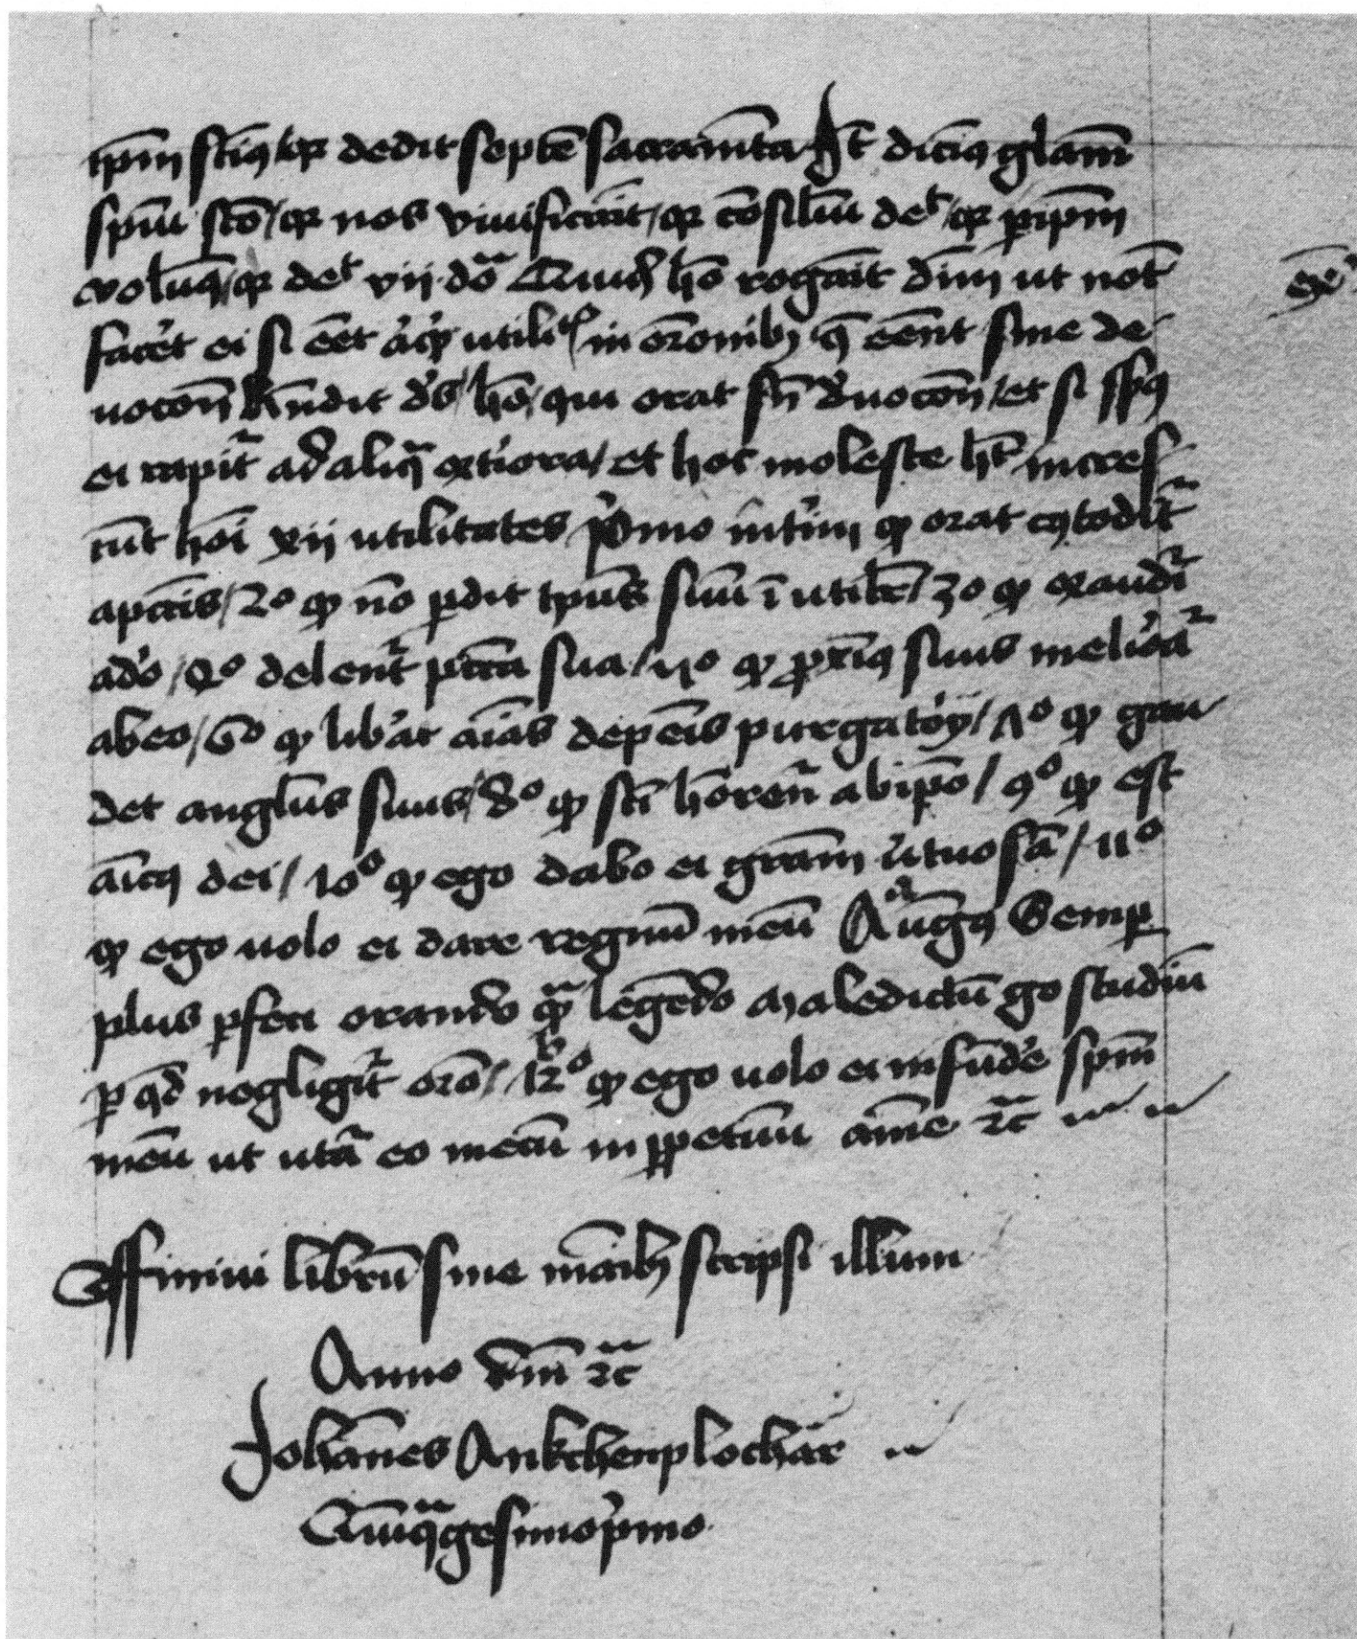 sp̄m sc̄m qr dedit septē sacramēta It dicim9 glām
spūi sc̄o / qr nos viuificauit / qr cōsiliū det / qr p ip̄m
/ qr det vij dōa Quidā hō rogauit dn̄m ut not
facet ei si eēt aliq utilitas in orōnib3 q̄ eēnt sine de
uocōn Rn̄dit dn̄s / hō / qui orat sn̄ deuocōn / et si sp̄us
ei rapit᷑ ad aliq̄ exteriora / et hoc moleste ht̄ incres
cūt hōi xij utilitates Primo interim qꝫ orat custodit᷑
a pctis / 2o qꝫ nō pdit tp̄us suū in utile / 3o qꝫ exaudit᷑
a deo / 4o delent᷑ pctā sua / 5o qꝫ proxim9 suus meliorat᷑
ab eo / 6o qꝫ liberat aīas de penis purgatorij / 7o qꝫ gau
det angelus suus / 8o qꝫ scī honorent᷑ ab ip̄o / 9o qꝫ est
amic9 dei / 10o qꝫ ego dabo ei grām virtuosā / 11o
qꝫ ego uolo ei dare regnū meū Aug9 Semp
plus pfeci orando qꝫ legēdo maledictū go studiū
p qd negligit᷑ orō / 12o qꝫ ego uolo ei infūde sp̄m
meū ut utat᷑ eo mecū in ppetuū amē ⁊c̄
Ffiniui librū sine mānib3 scripsi illum
Anno dn̄i ⁊c̄
Johānes Ankchenplochar
Quīq̄gesimoprimo